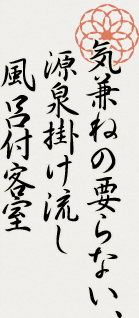 気兼ねの要らない、
源泉掛け流し
風呂付客室